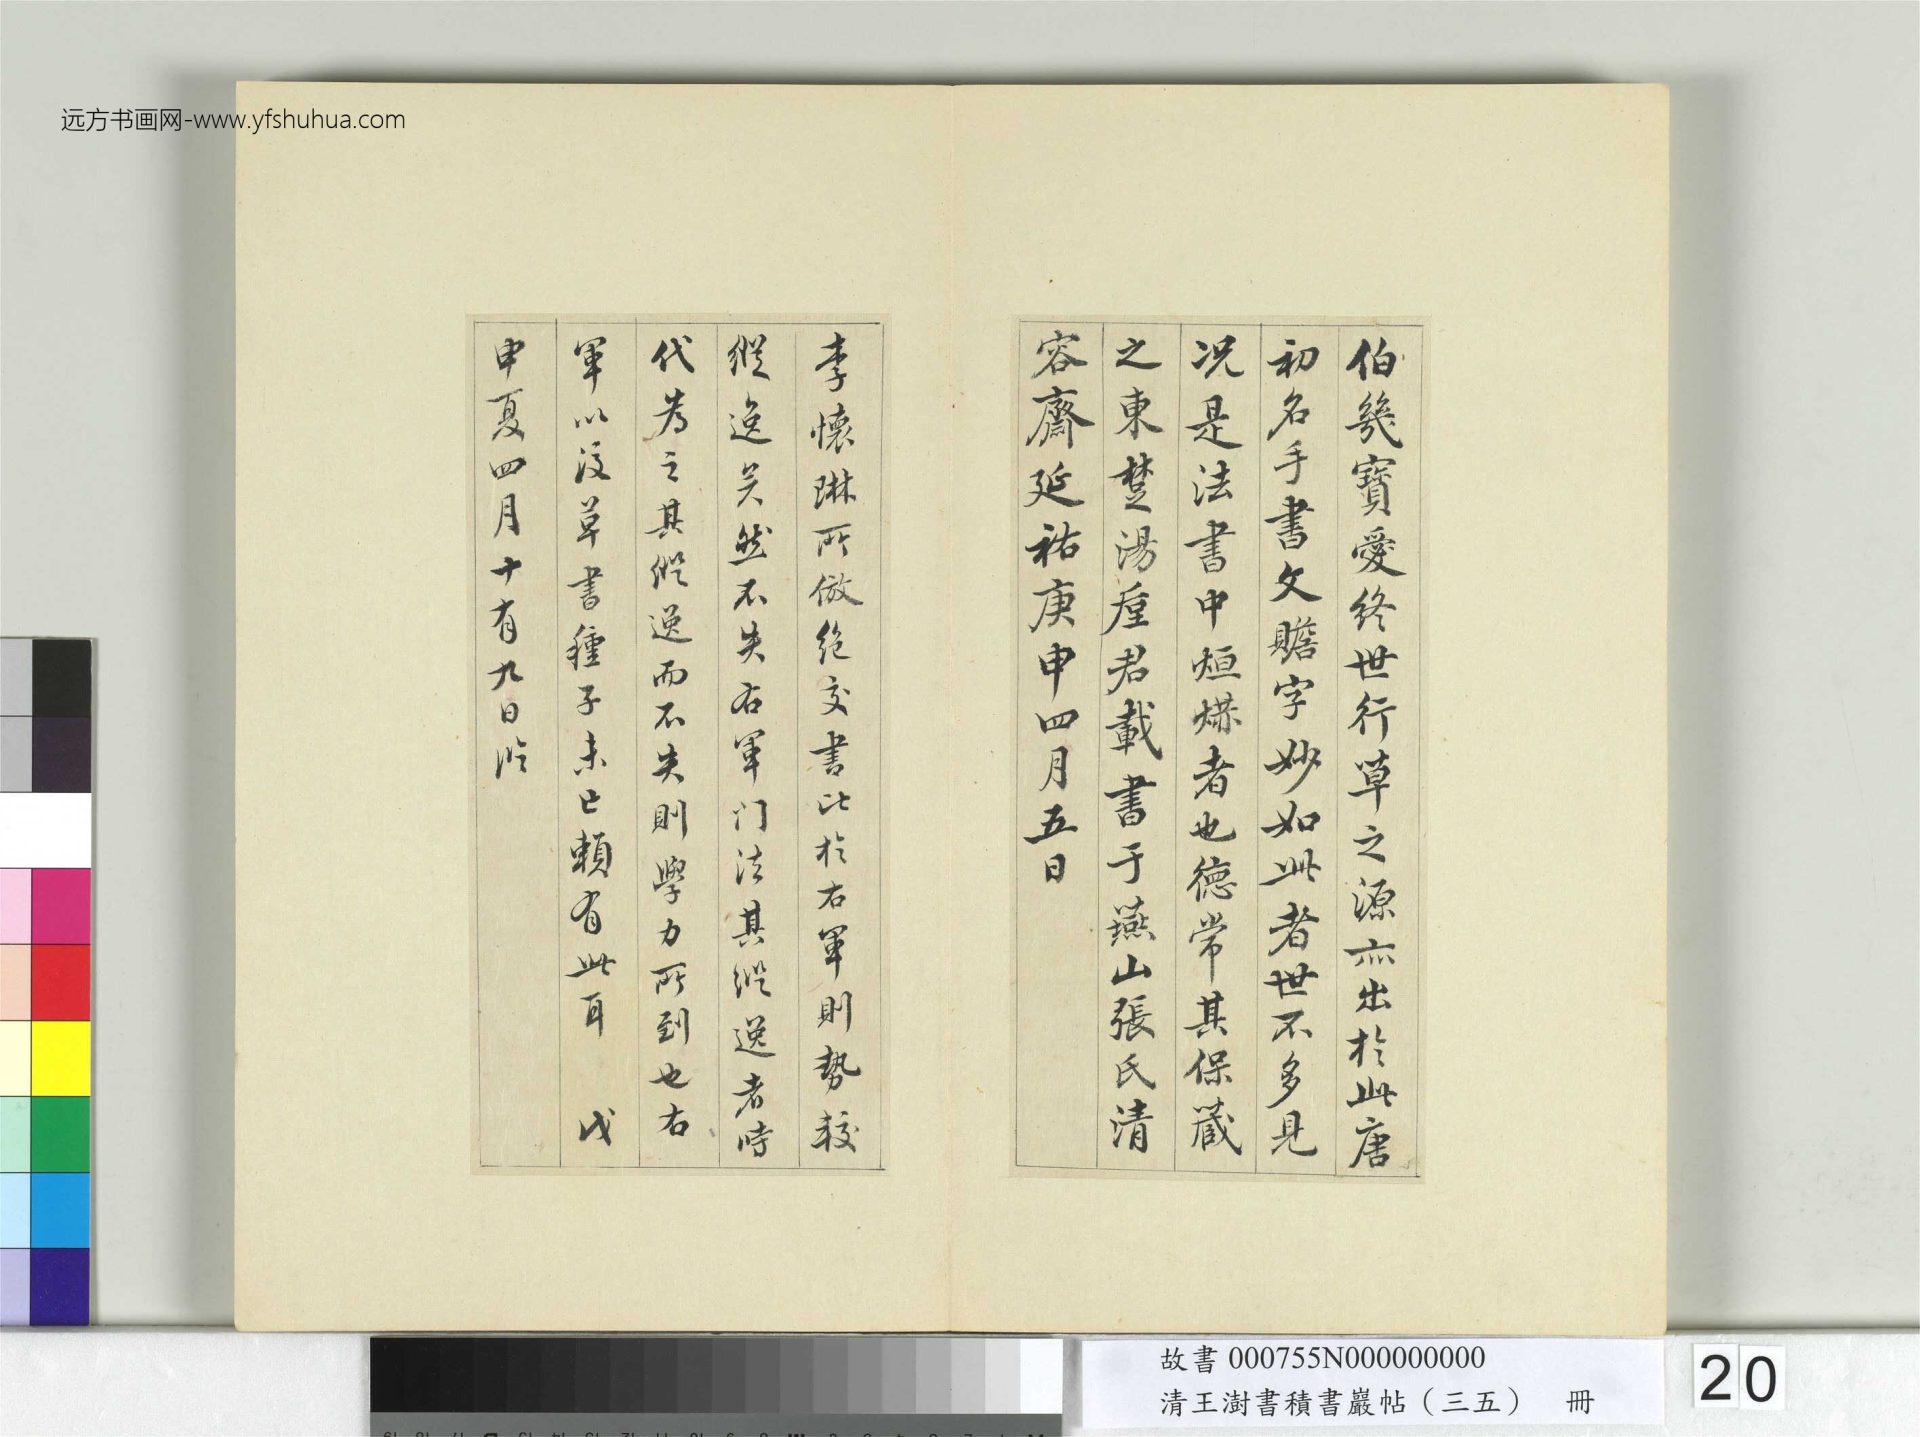 远方书画网-www.yfshuhua.com
伯幾寶愛終世行草之源亦出於此唐
初名手書文贍字妙如此者世不多見
况是法書中烜爍者也德常其保藏
之東楚湯垕君載書于燕山張氏清
容齋延祐庚申四月五日
李懷琳所倣絶交書比於右軍則勢較
縱逸矣然不失右軍门法其縱逸者時
代為之其縱逸而不失則學力所到也右
軍以後草書種子未亡賴有此耳 戊
申夏四月十有九日臨
故書 000755N000000000
清王澍書積書巖帖（三五） 冊
20